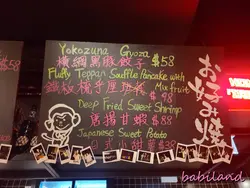 Yokozuna Gyoza
橫綱煎餃子 $58
Fluffy Teppan Souffle Pancake with
Mix fruit
$98
Deep Fried Sweet Shrimp
唐揚甘蝦 $88
Japanese Sweet Potato
日式小甜薯 $38
お好み焼
babiland